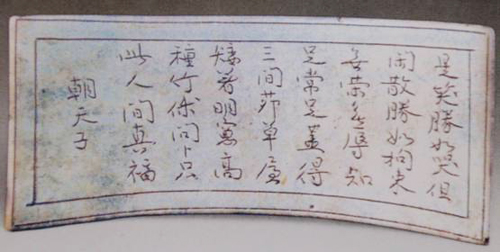 是笑勝如哭但
閑散勝如拘束
無榮無辱知
足常足蓋得
三間茆草廬
矮着明窓高
種竹休問卜只
此人間真福
朝天子